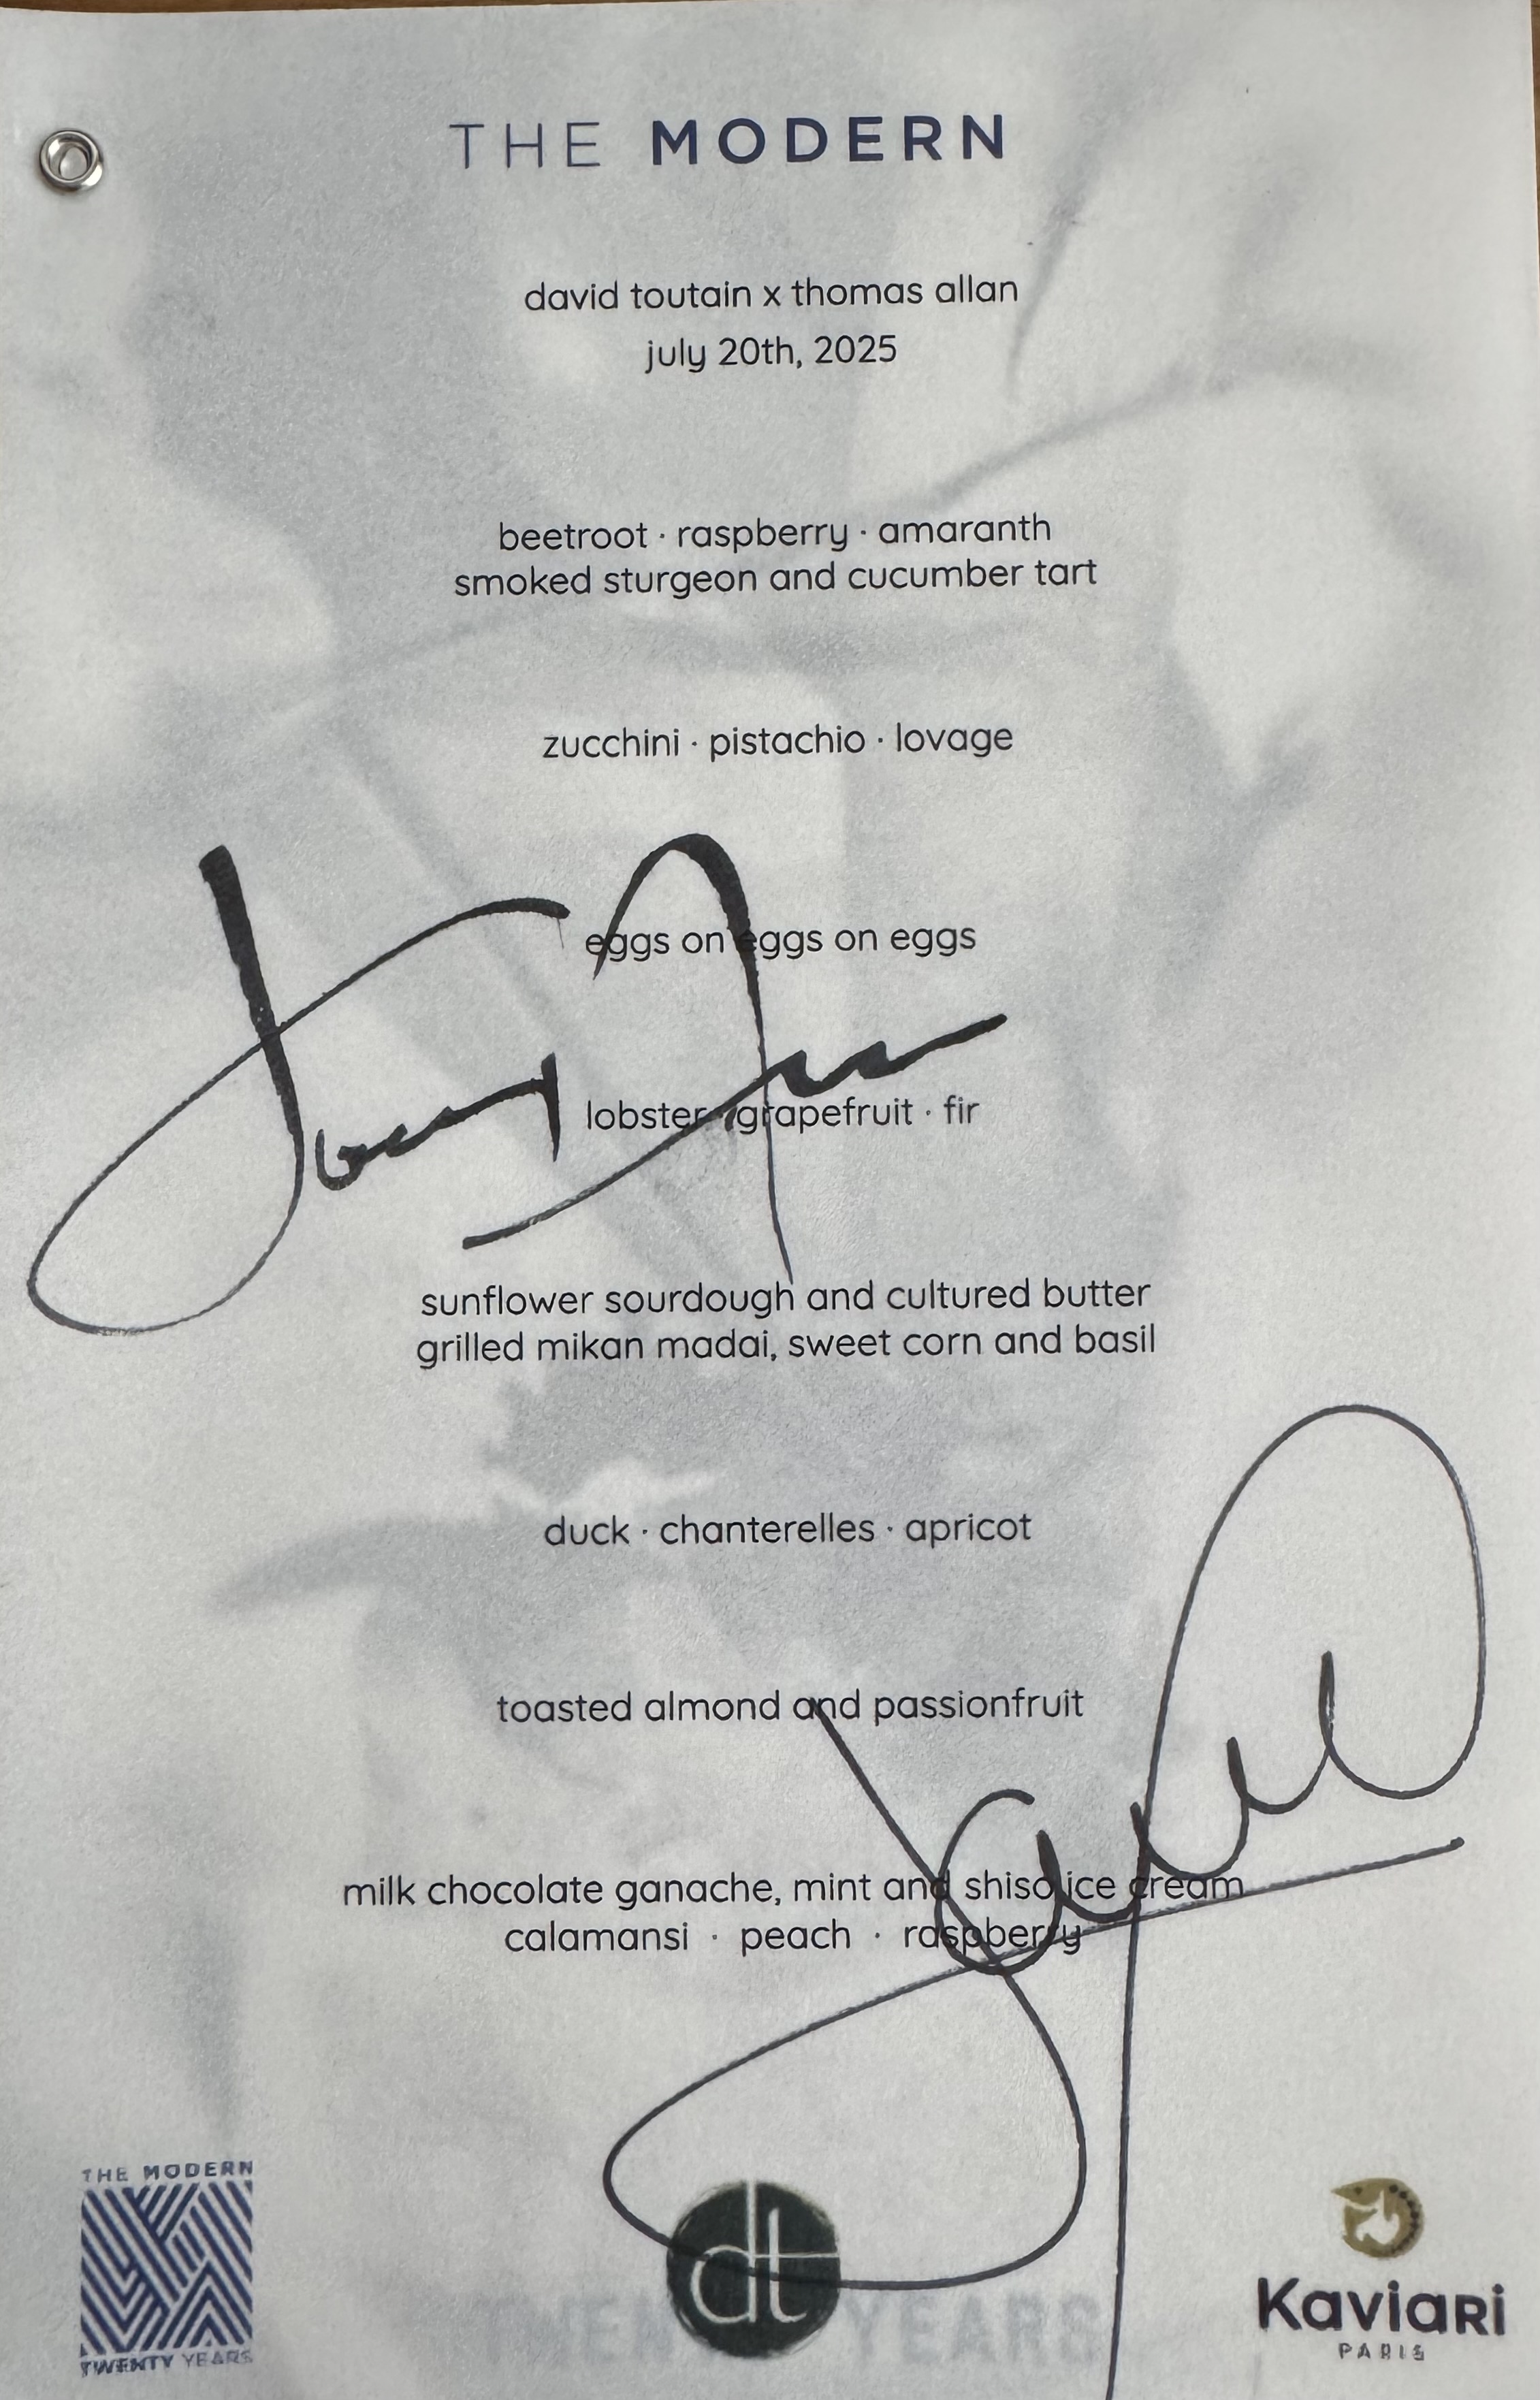 THE MODERN
david toutain x thomas allan
july 20th, 2025
beetroot · raspberry · amaranth
smoked sturgeon and cucumber tart
zucchini · pistachio · lovage
eggs on eggs on eggs
lobster · grapefruit · fir
sunflower sourdough and cultured butter
grilled mikan madai, sweet corn and basil
duck · chanterelles · apricot
toasted almond and passionfruit
milk chocolate ganache, mint and shiso ice cream
calamansi · peach · raspberry
THE MODERN
TWENTY YEARS
dt
TWENTY YEARS
Kaviari
PARIS